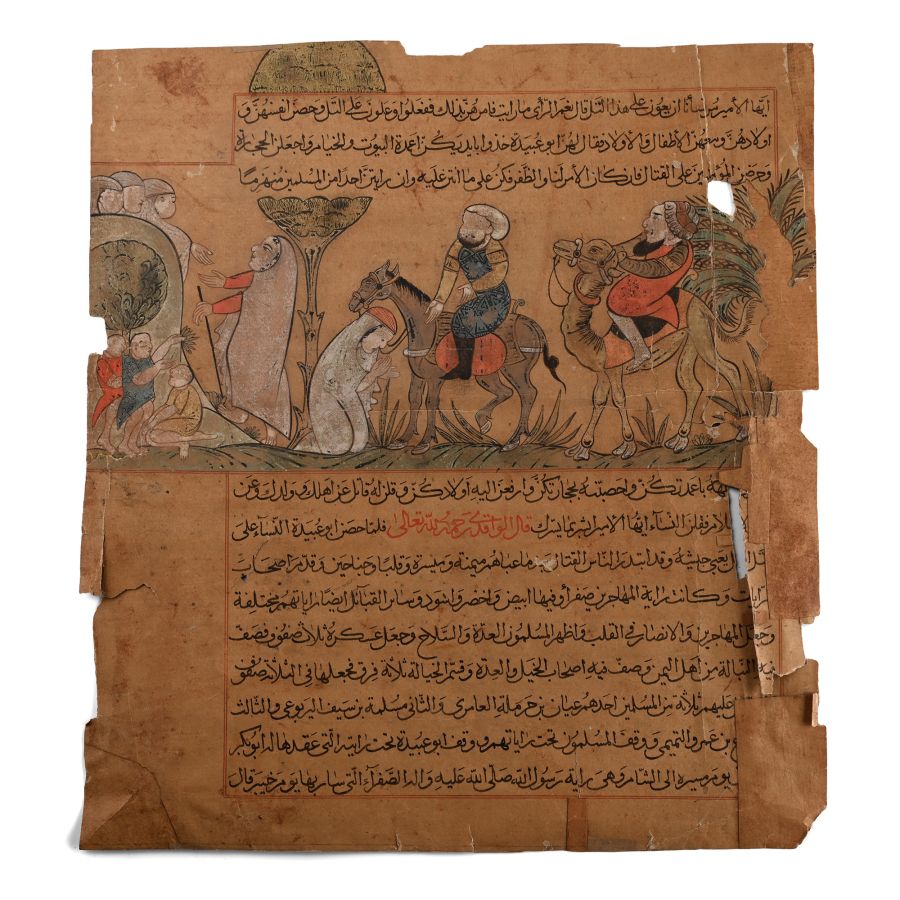 ايها الأمير نساءنا ان يعون على هذا التل قال نعم الرأي ما رايت فامرهن بذلك ففعلوا وعلون على التل وحصن انفسهن و
اولادهن ومعهن الأطفال والاولاد فقال لهن ابو عبيدة خذوا بايديكن اعمدة البيوت والخيام واجعلن الحجارة
وحرضن المؤمنين على القتال فان كان الأمر لنا والظفر فكن على ما انتن عليه وان رايتن احدا من المسلمين منهزما
باعمدتكن واحصبنه بحجارتكن وارفعن اليه اولادكن وقلن له قاتل عن اهلك وولدك وعن
فقلن النساء ايها الأمير ابشر بما يسرك قال الواقدي رحمه الله تعالى فلما حصن ابو عبيدة النساء على
يعبي جيشه وقد ابتدر الناس القتال عباهم ميمنة وميسرة وقلبا وجناحين وقدم اصحاب
رايات وكانت راية المهاجرين صفرا وفيها ابيض واخضر واسود وساير القبائل ايضا راياتهم مختلفة
وجعل المهاجرين والانصار في القلب واظهر المسلمون العدة والسلاح وجعل عسكره ثلاث صفوف فصف
فيه النبالة من أهل اليمن وصف فيه اصحاب الخيل والعدة وقسم الخيالة ثلاثة فرق فجعلها في الثلاث صفوف
عليهم ثلاثة من المسلمين احدهم غياث بن حرملة العامري والثاني مسلمة بن سيف اليربوعي والثالث
بن عمرو التميمي ووقف المسلمون تحت راياتهم ووقف ابو عبيدة تحت رايته التي عقدها له ابو بكر
يوم مسيره الى الشام وهي راية رسول الله صلى الله عليه والـه الصفراء التي سار بها يوم خيبر قال